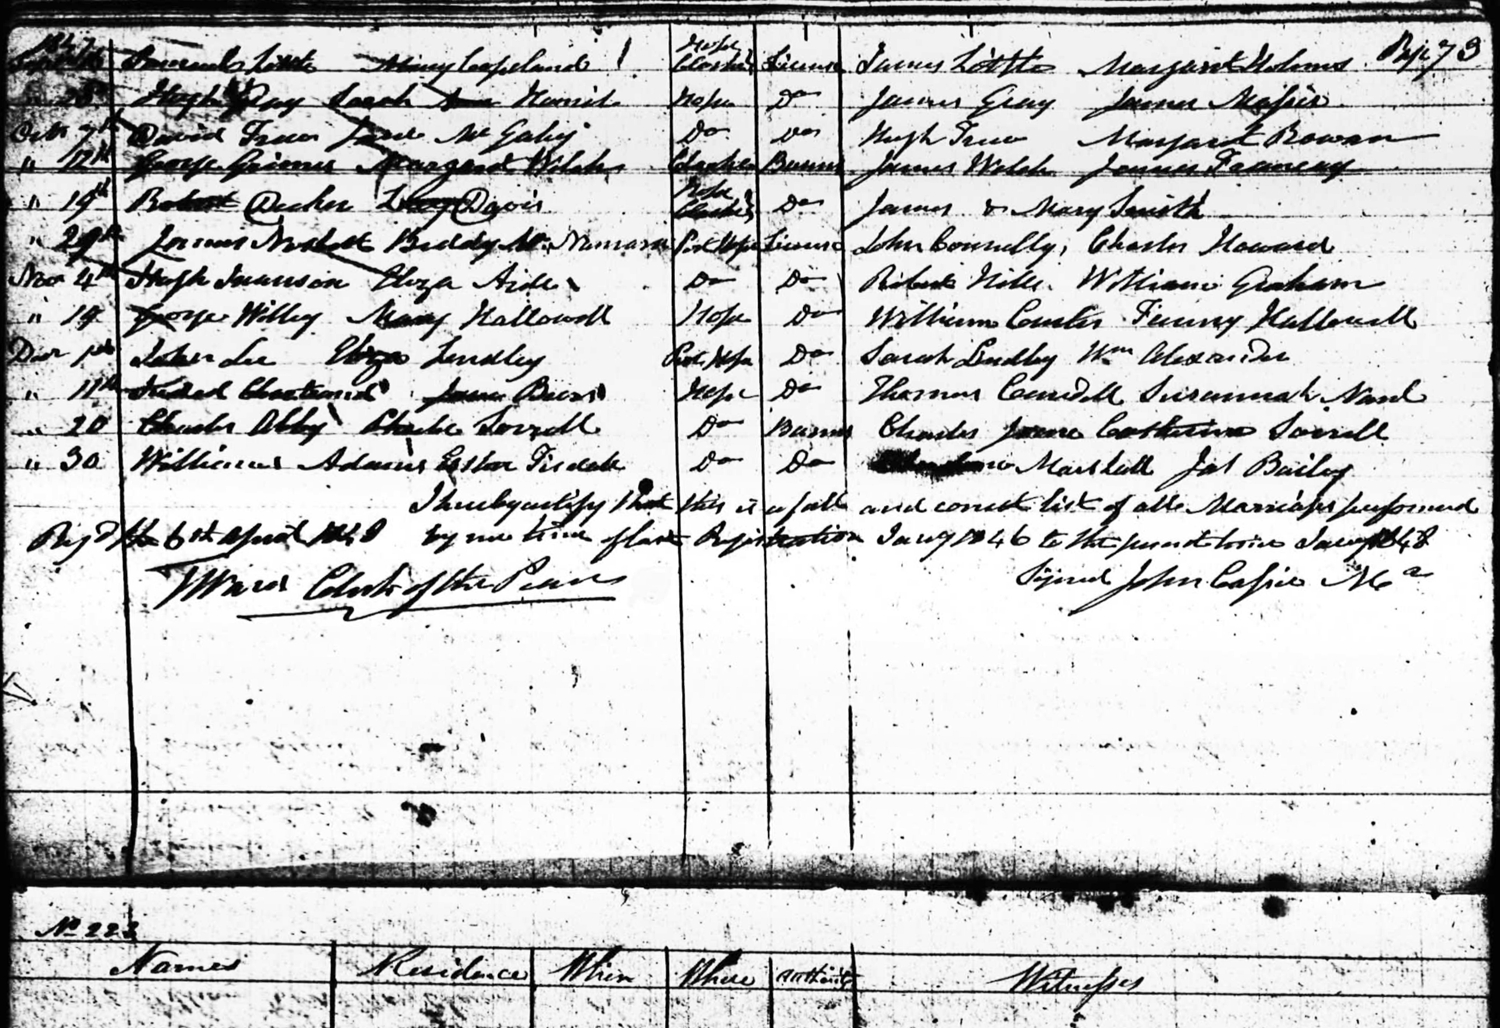 1847 Page 73
Samuel Little Mary Copeland Hope Clarke License James Little Margaret Holmes
" 28 Hugh Gray Sarah Hope Do James Gray James
Octr 7th David True Jane Mc Gahey Do Do Hugh True Margaret Bowan
" 12th George Margaret Welsh Clarke Banns James Welsh James
" 19th Robert Decker Lucy Davis Hope Clarke Do James & Mary Smith
" 29th James Nesbitt Biddy Mc Namara Port Hope License John Connelly, Charles Howard
Nov 4th Hugh Swanson Eliza Do Do Robert Hill William Graham
" 19 George Willey Mary Hallowell Hope Do William Fanny Hallowell
Decr 1st John Lee Eliza Lindley Port Hope Do Sarah Lindley Wm Alexander
" 11th Jane Hope Do Thomas Susannah
" 20 Charles Abby Phebe Sorrell Do Banns Charles Catherine Sorrell
" 30 William Adams Esther Tisdale Do Do Marshall Jas Bailey
I hereby certify that this is a full and correct list of all Marriages performed
Regd the 6th April 1848 by me since of last Registration Jany 1846 to the present time Jany 1848
JWard Clerk of the Peace Signed John Cassie Ma
No 223
Names Residence When Where Authority Witnesses